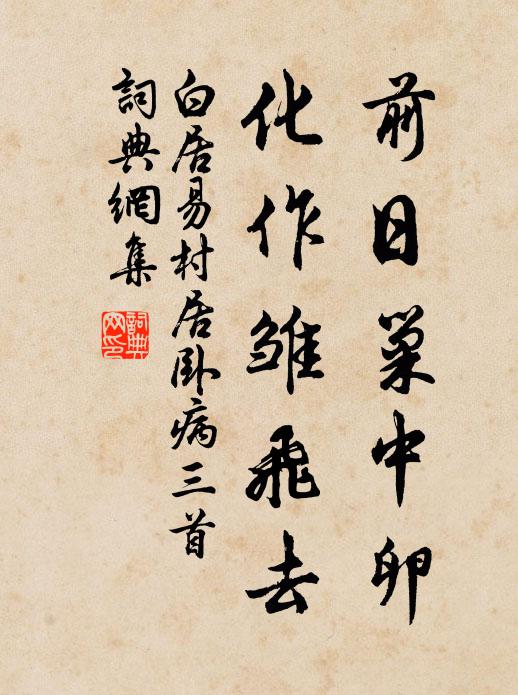 前日巢中卵
化作雏飛去
白居易村居卧病三首
詞典網集
詞典
网印